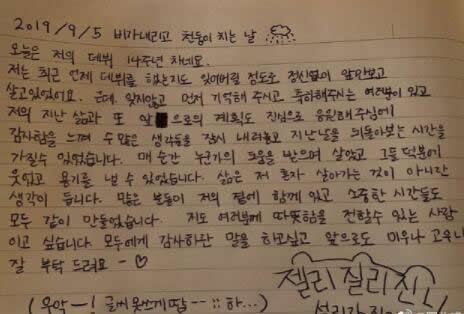 2019/9/5 비가내리고 천둥이 치는 날
오늘은 저의 데뷔 14주년 차네요.
저는 최근 언제 데뷔를 했는지도 잊어버릴 정도로 정신없이 앞만보고
살고있었어요. 근데 잊지않고 먼저 기억해 주시고 축하해주시는 여러분이 있고
저의 지난 삶과 또 앞으로의 계획도 진심으로 응원해주심에
감사함을 느껴 수 많은 생각들을 잠시 내려놓고 지난날을 되돌아보는 시간을
가질수 있었습니다. 매 순간 누군가의 도움을 받으며 살았고 그들 덕분에
웃었고 용기를 낼 수 있었습니다. 삶은 저 혼자 살아가는 것이 아니란
생각이 듭니다. 많은 분들이 저의 곁에 함께 있고 소중한 시간들도
모두 같이 만들었습니다. 저도 여러분께 따뜻함을 전할수 있는 사람
이고 싶습니다. 모두에게 감사하단 말을 하고싶고 앞으로도 미우나 고우나
잘 부탁 드려요 ~ ♡
젤리질리진
(우악ー! 글씨 못쓰게땁 -- ;; 하...)